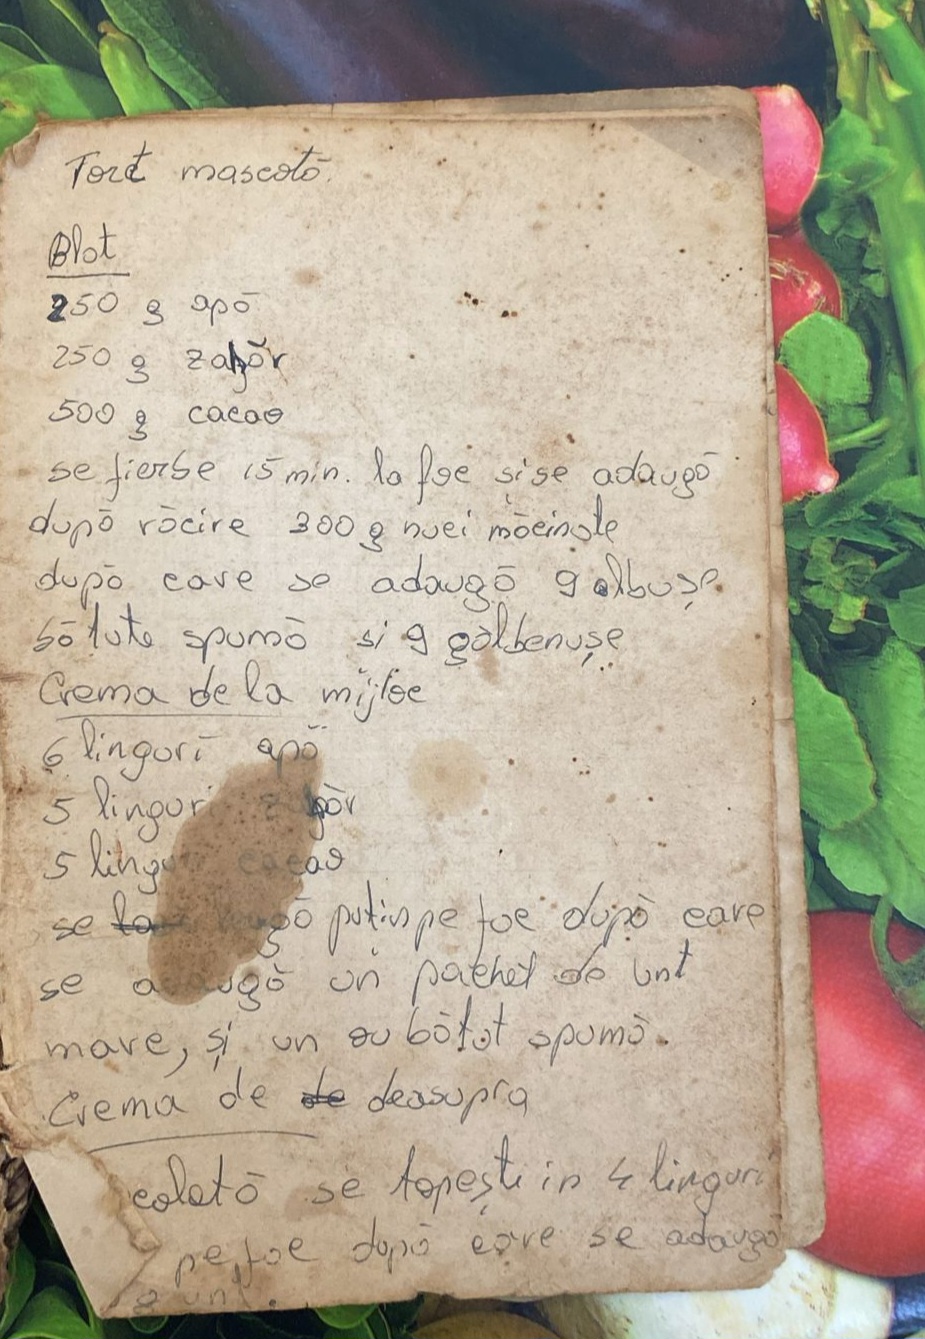 Tort mascotă.
Blat
250 g apă
250 g zahăr
500 g cacao
se fierbe 15 min. la foc și se adaugă
după răcire 300 g nuci măcinate
după care se adaugă 9 albușe
bătute spumă si 9 gălbenușe
Crema de la mijloc
6 linguri apă
5 linguri zahăr
5 linguri cacao
se puțin pe foc după care
se adaugă un pachet de unt
mare, și un ou bătut spumă.
Crema de de deasupra
colată se topește in 4 linguri
pe foc după care se adaugă
g unt.